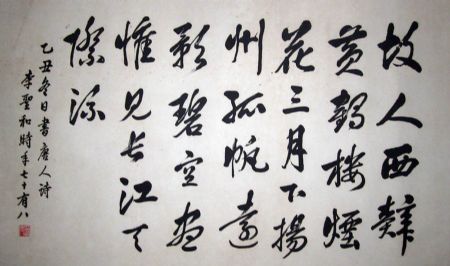 故人西辭
黃鶴樓煙
花三月下揚
州孤帆遠
影碧空盡
惟見長江天
際流
乙丑冬日書唐人詩
李聖和時年七十有八